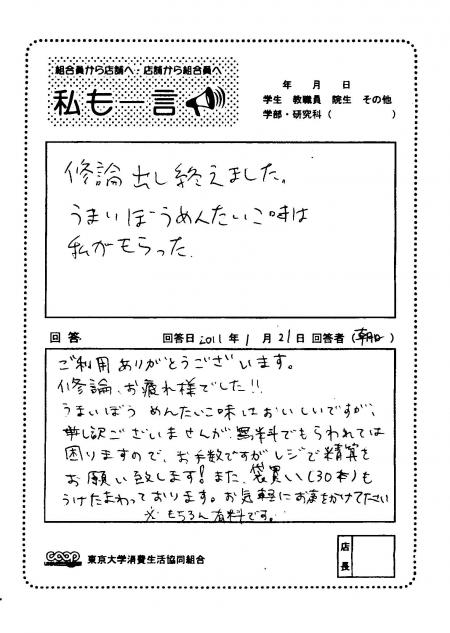 組合員から店舗へ・店舗から組合員へ
私も一言
年 月 日
学生 教職員 院生 その他
学部・研究科( )
修論出し終えました。
うまいぼうめんたいこ味は
私がもらった.
回答 回答日2011年1月21日 回答者(朝日)
ご利用ありがとうございます。
修論、お疲れ様でした!!
うまいぼう めんたいこ味はおいしいですが、
申し訳ございませんが、無料でもらわれては
困りますので、お手数ですがレジで精算を
お願い致します!また、袋買い(30本)も
うけたまわっております。お気軽にお声をかけて下さい
※もちろん有料です。
coop 東京大学消費生活協同組合
店長